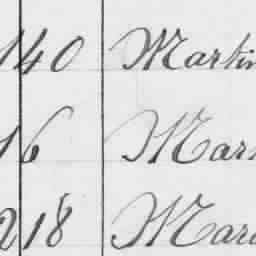 140 Martin
16 Mar
218 Mar